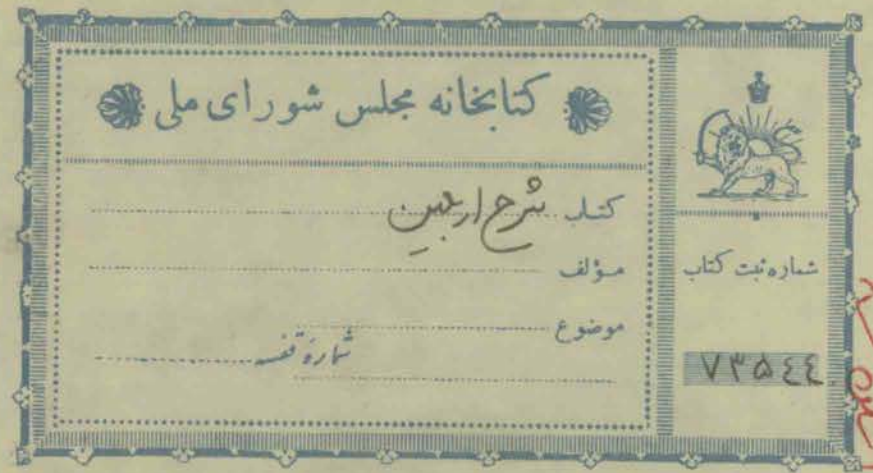 کتابخانه مجلس شورای ملی
کتاب شرح اربعین
مؤلف
موضوع
شماره قفسه
شماره ثبت کتاب
۷۳۵۴۴